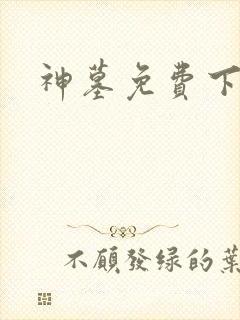 神墓免費下
不願發绿的葉